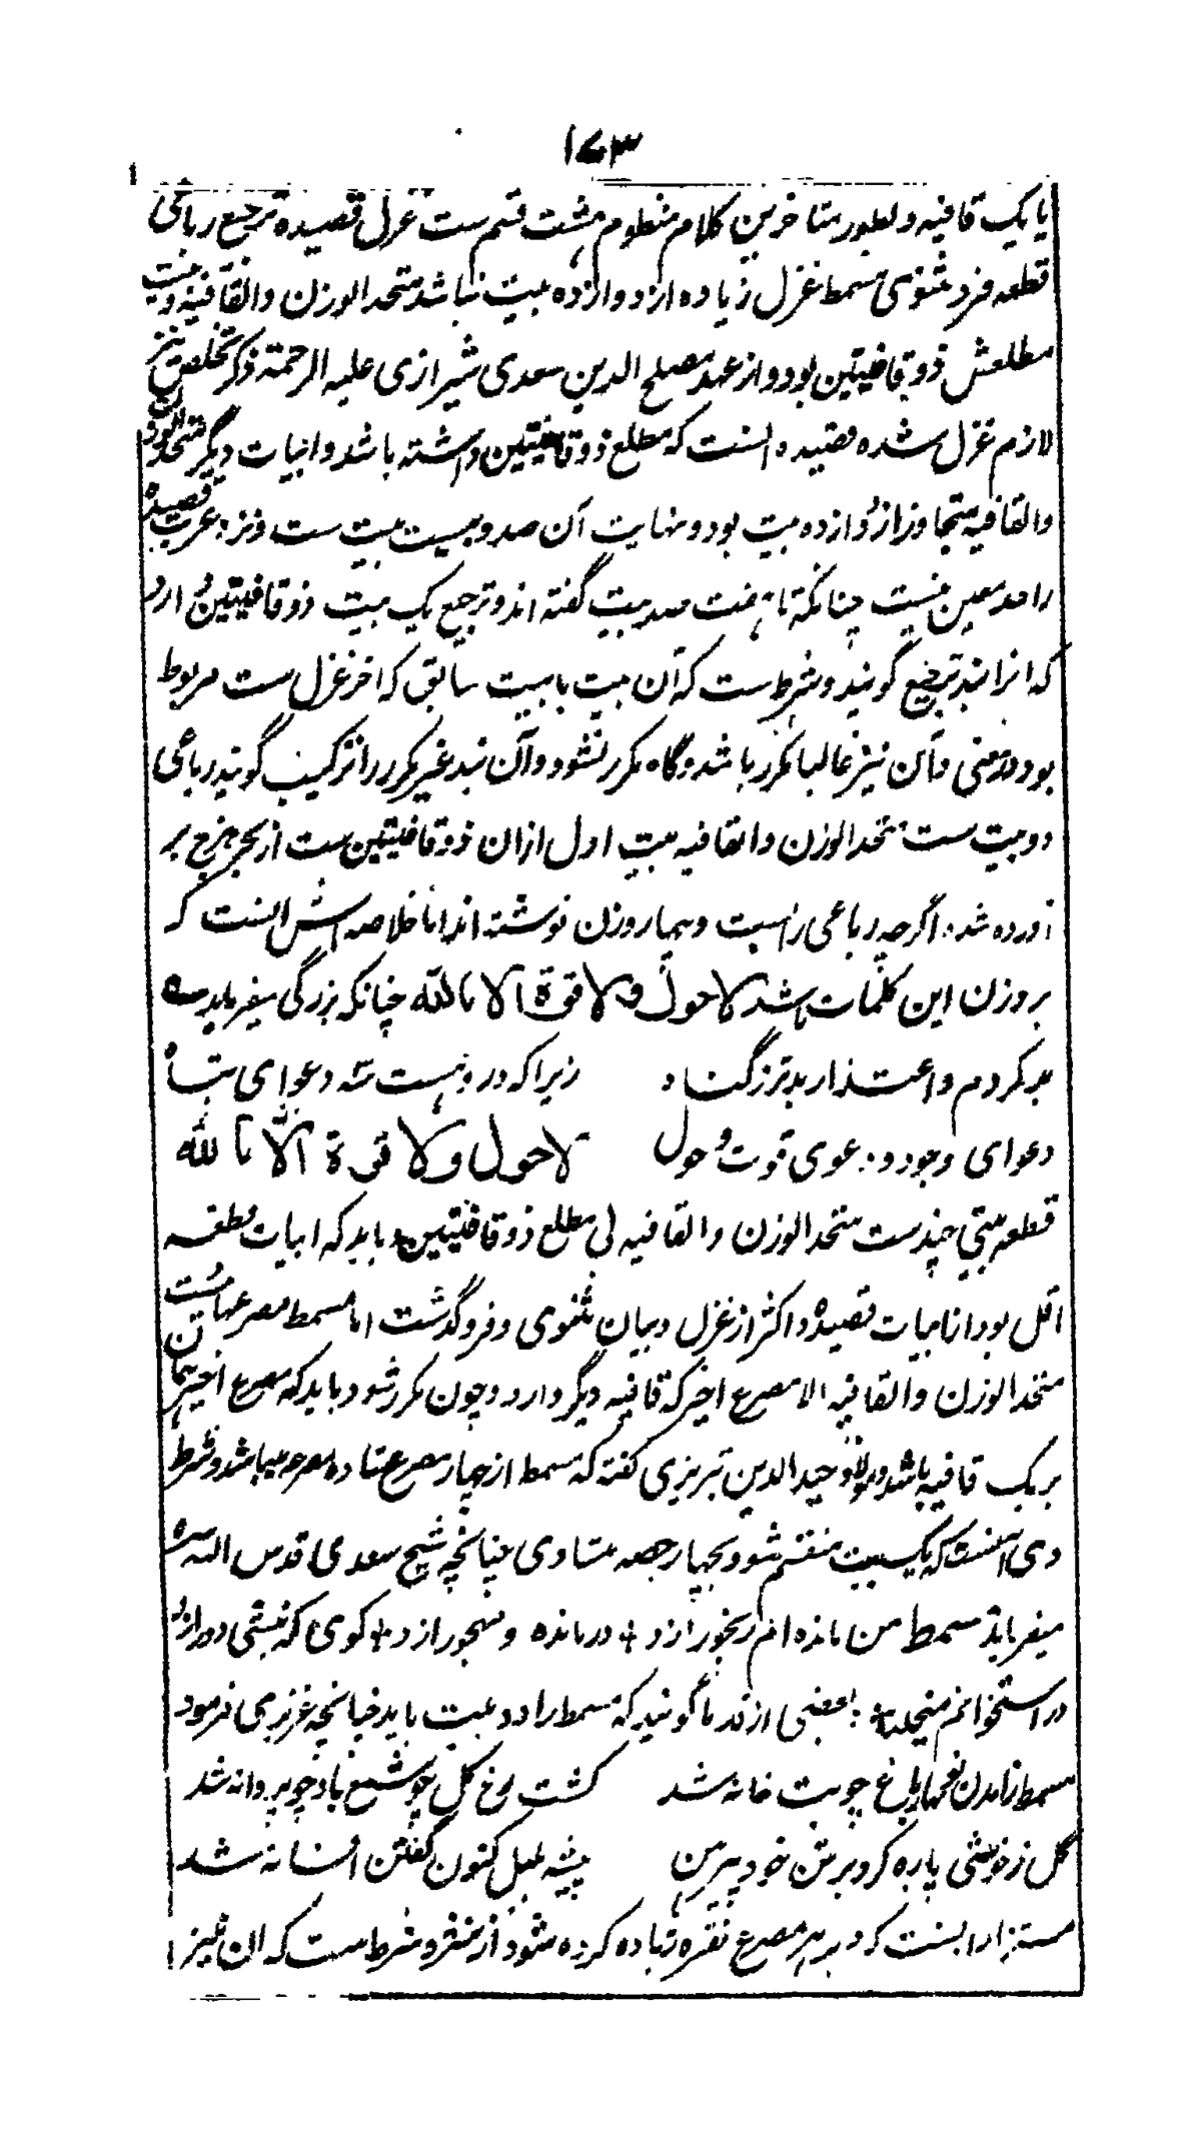 ۱۷۳
یا یک قافیه و بطور متاخرین کلام منظوم هشت قسم ست غزل قصیده ترجیع رباعی
قطعه فرد مثنوی مسمط غزل زیاده از دوازده بیت نباشد متحد الوزن والقافیه و بیت
مطلعش ذوقافیتین بود و از عهد مصلح الدین سعدی شیرازی علیه الرحمة ذکر تخلص نیز
لازم غزل شده قصیده انست که مطلع ذوقافیتین داشته باشد و ابیات دیگر متحد الوزن
والقافیه متجاوز از دوازده بیت بود و نهایت آن صد و بیست بیت ست و نزد عرب قصیده
را حد معین نیست چنانکه تا هفت صد بیت گفته اند و ترجیع یک بیت ذوقافیتین دارد
که انرا بند ترجیع گویند و شرط ست که آن بیت با بیت سابق که اخر غزل ست مربوط
بود در معنی و آن نیز غالبا مکرر باشد و گاه مکرر نشود و آن بند غیر مکرر را ترکیب گویند رباعی
دو بیت ست متحد الوزن والقافیه بیت اول ازان ذوقافیتین ست از بحر هزج بر
آورده شد اگرچه رباعی را بیست و چهار وزن نوشته اند اما خلاصه اش انست که
بر وزن این کلمات باشد لاحول ولا قوة الا بالله چنانکه بزرگی میفرماید
بد کردم و اعتذار بدتر ز گناه زیرا که درو هست سه دعوای تباه
دعوای وجود و دعوی قوت و حول لاحول ولا قوة الا بالله
قطعه بیتی چند ست متحد الوزن والقافیه بی مطلع ذوقافیتین و باید که ابیات قطعه
اقل بود از ابیات قصیده و اکثر از غزل و بیان مثنوی و فرد گذشت اما مسمط مصرعها ست
متحد الوزن والقافیه الا مصرع اخیر که قافیه دیگر دارد و چون مکرر شود باید که مصرع اخیر
بر یک قافیه باشد و مولانا وحید الدین تبریزی گفته که مسمط از چهار مصرع تا ده مصرع میباشد و شرط
وی آنست که یک بیت منقسم شود بچهار حصه متساوی چنانچه شیخ سعدی قدس الله سره
میفرماید مسمط من مانده ام رنجور ازو * درمانده و مهجور ازو * گوی که نیشی دور ازو
در استخوانم میخلد * بعضی از قدما گویند که مسمط را دو بیت باید چنانچه عزیزی فرمود
مسمط ز آمدن نوبهار باغ چو بت خانه شد گشت رخ گل چو شمع باد چو پروانه شد
گل ز خوشی پاره کرد بر تن خود پیرهن پیشه بلبل کنون گفتن افسانه شد
مستزاد انست که در هر مصرع فقره زیاده کرده شود از نثر و شرط ست که آن نیز